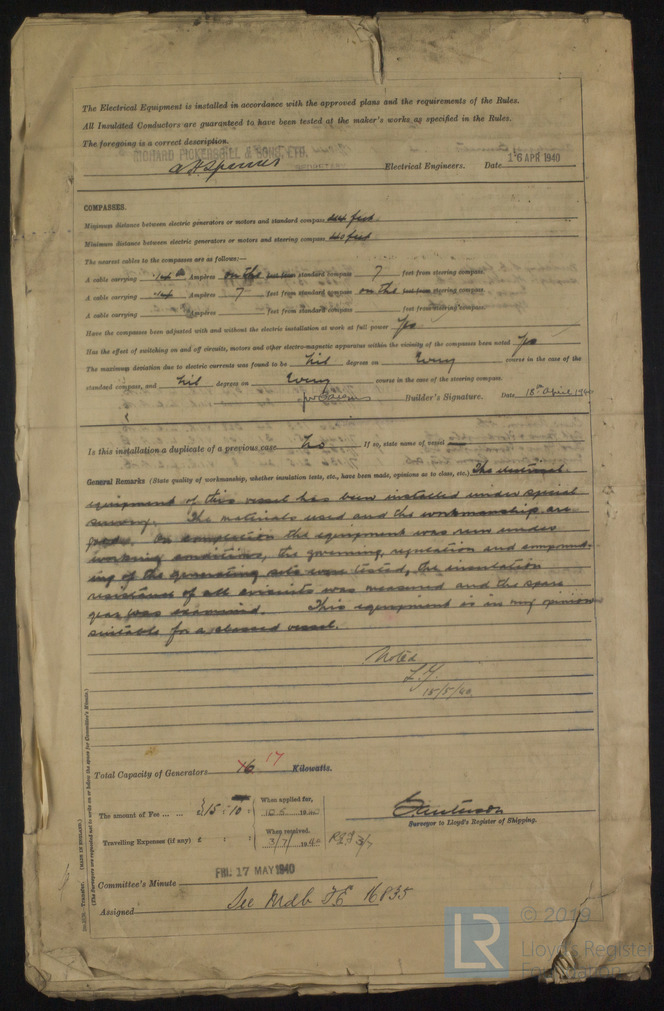 The Electrical Equipment is installed in accordance with the approved plans and the requirements of the Rules.
All Insulated Conductors are guaranteed to have been tested at the maker's works as specified in the Rules.
The foregoing is a correct description.
RICHARD PICKERSGILL & SONS, LTD.
Electrical Engineers. Date 16 APR 1940
COMPASSES.
Minimum distance between electric generators or motors and standard compass feet
Minimum distance between electric generators or motors and steering compass feet
The nearest cables to the compasses are as follows:—
A cable carrying Ampères on the feet from standard compass 7 feet from steering compass.
A cable carrying Ampères 7 feet from standard compass on the feet from steering compass.
A cable carrying Ampères feet from standard compass feet from steering compass.
Have the compasses been adjusted with and without the electric installation at work at full power Yes
Has the effect of switching on and off circuits, motors and other electro-magnetic apparatus within the vicinity of the compasses been noted Yes
The maximum deviation due to electric currents was found to be Nil degrees on Every course in the case of the
standard compass, and Nil degrees on Every course in the case of the steering compass.
Builder's Signature. Date 18th April 1940
Is this installation a duplicate of a previous case No If so, state name of vessel —
General Remarks (State quality of workmanship, whether insulation tests, etc., have been made, opinions as to class, etc.) The electrical
equipment of this vessel has been installed under special
survey. The materials used and the workmanship are
good. On completion the equipment was run under
working conditions, the governing, regulation and compound-
ing of the generating sets were tested, the insulation
resistance of all circuits was measured and the spare
gear was examined. This equipment is in my opinion
suitable for a classed vessel.
Noted
18/5/40
Total Capacity of Generators 17 Kilowatts.
The amount of Fee ... ... £15 : 10 : When applied for, 10.5 1940
Travelling Expenses (if any) £ : : When received, 3/7/ 1940
Surveyor to Lloyd's Register of Shipping.
FRI. 17 MAY 1940
Committee's Minute
Assigned See Mdb FE 16835
Transfer. (MADE IN ENGLAND.)
(The Surveyors are requested not to write on or below the space for Committee's Minute.)
LR
© 2019
Lloyd's Register
Foundation